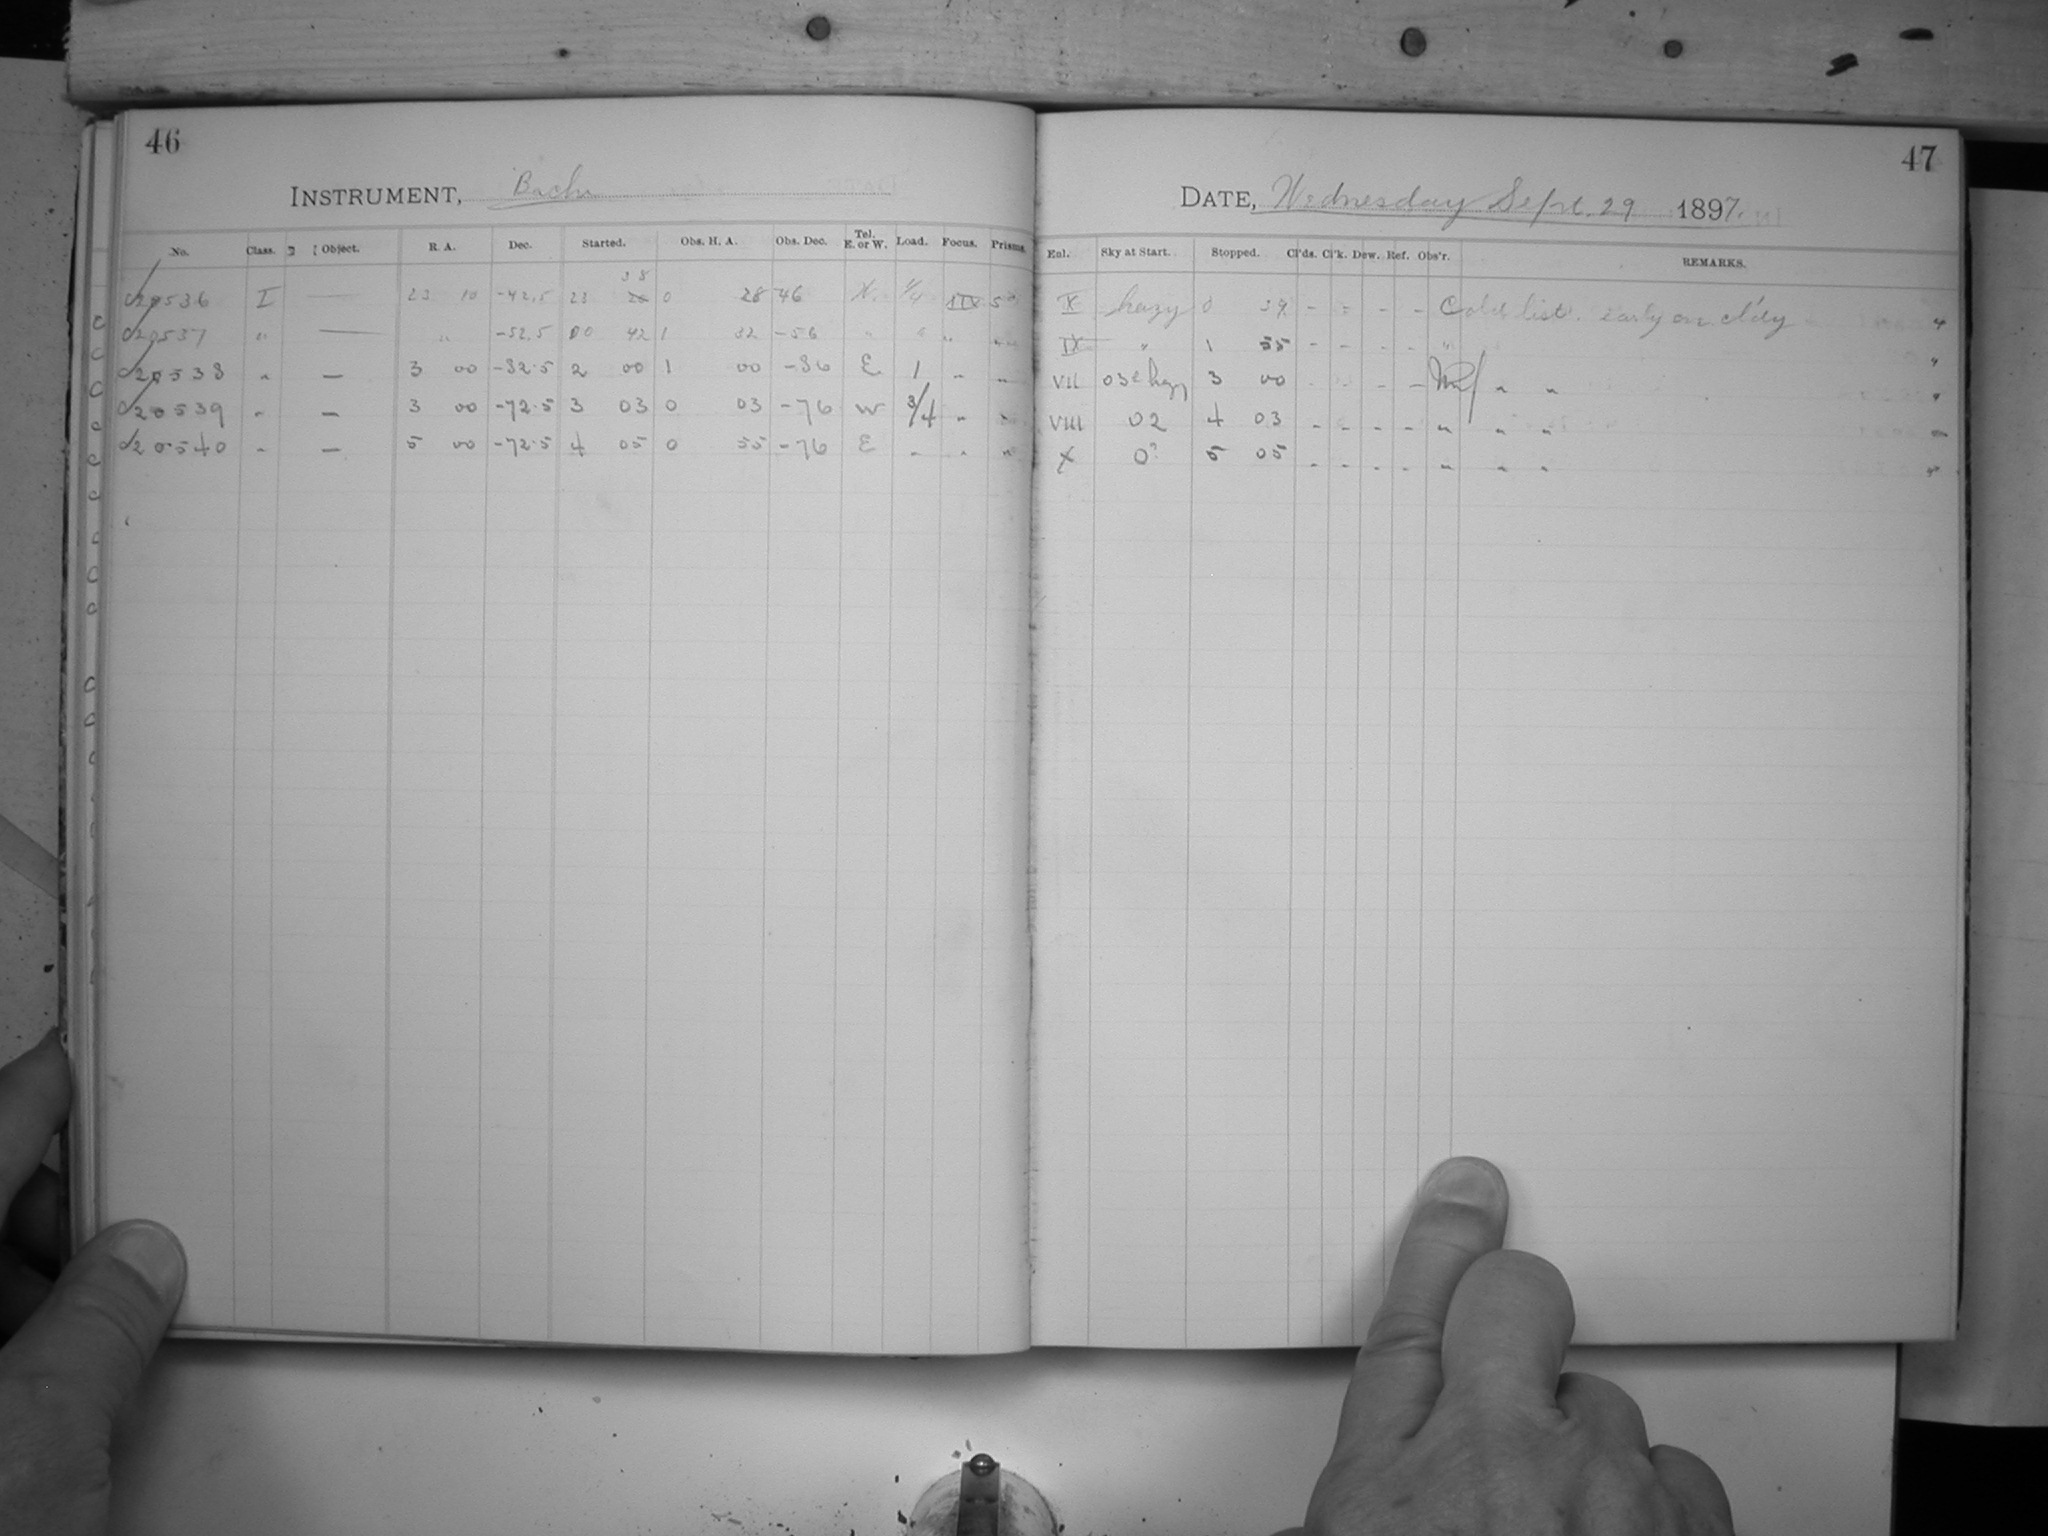 46
INSTRUMENT, Bache
No. Class. Object. R. A. Dec. Started. Obs. H. A. Obs. Dec. Tel. E. or W. Load. Focus. Prisms.
38
20536 I — 23 10 -42.5 23 0 28 46 W. 5°
20537 " — " -52.5 00 42 1 32 -56 " " " "
20538 " — 3 00 -32.5 2 00 1 00 -36 E 1 " "
20539 " — 3 00 -72.5 3 03 0 03 -76 W 3/4 " "
20540 " — 5 00 -72.5 4 05 0 55 -76 E " " "
47
DATE, Wednesday Sept. 29 1897.
Enl. Sky at Start. Stopped. Cl'ds. Cl'k. Dew. Ref. Obs'r. REMARKS.
X hazy 0 39 - - - - Cold list. early on cl'dy
IX " 1 55 - - - - "
VII hazy 3 00 - " "
VIII 02 4 03 - - - - " " "
X 0? 5 05 - - - - " " "